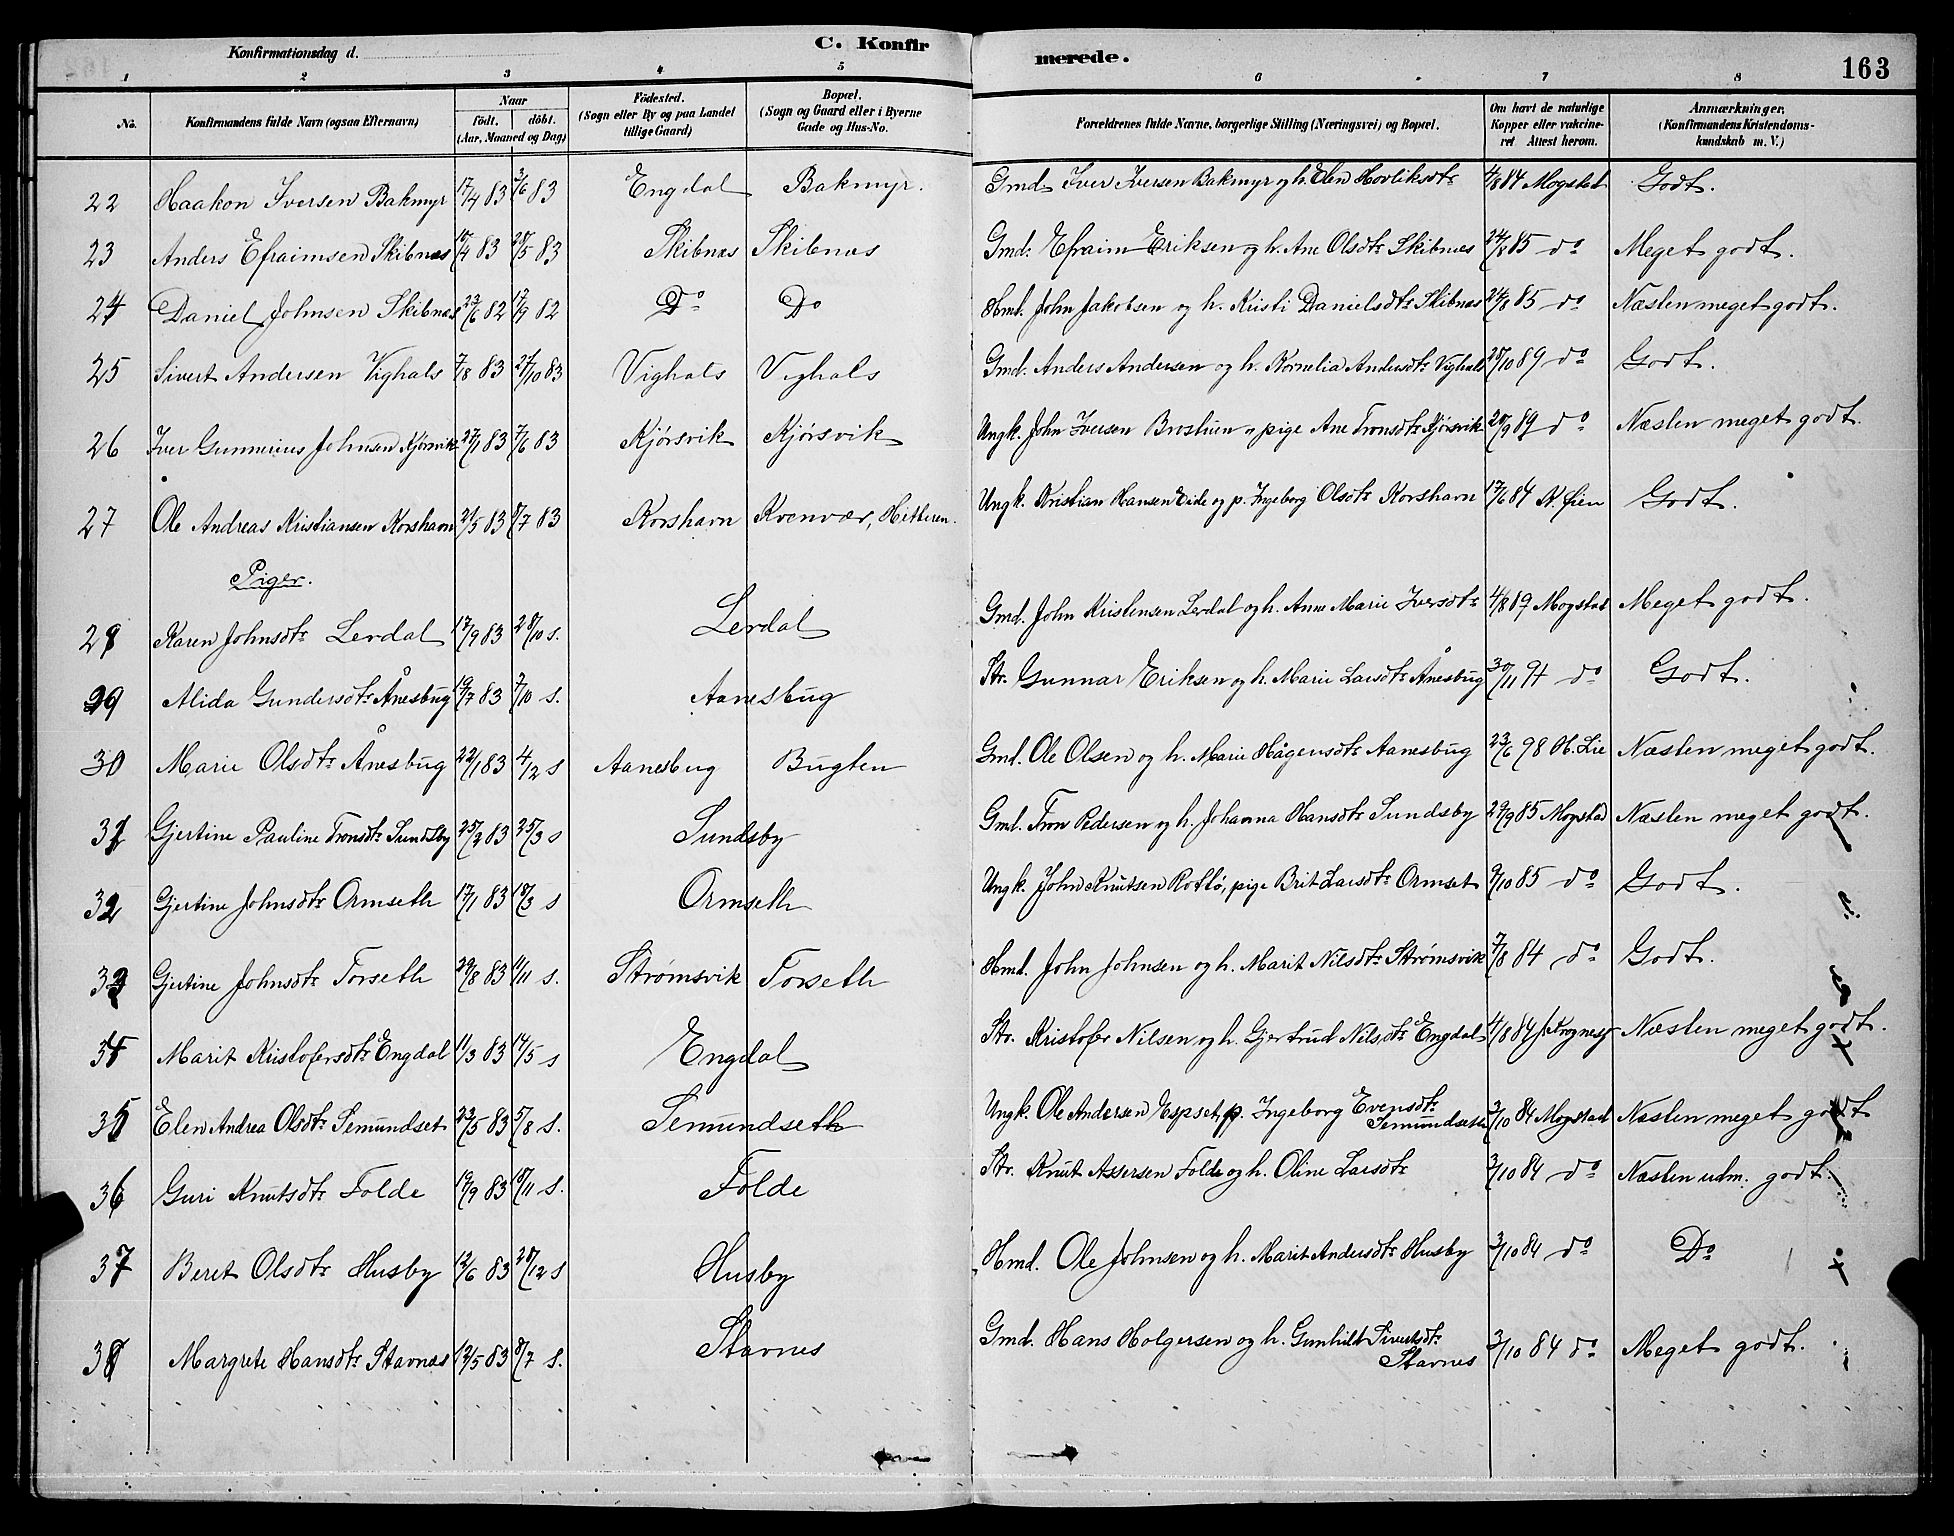 Konfirmationsdag d.
C. Konfirmerede.
163
1 2 3 4 5 6 7 8
No. | Konfirmandens fulde Navn (ogsaa Efternavn) | Naar födt. döbt. (Aar, Maaned og Dag) | Födested. (Sogn eller By og paa Landet tillige Gaard) | Bopæl. (Sogn og Gaard eller i Byerne Gade og Hus-No.) | Forældrenes fulde Navne, borgerlige Stilling (Næringsvei) og Bopæl. | Om havt de naturlige Kopper eller vakcineret Attest herom. | Anmærkninger, (Konfirmandens Kristendomskundskab m. V.)
22 Haakon Iversen Bakmyr 17/4 83 3/6 83 Engdal Bakmyr. Gmd. Iver Iversen Bakmyr og h. Elen Hovliksdtr 4/8 84 Mogstad Godt.
23 Anders Efraimsen Skibnæs 15/4 83 20/5 83 Skibnæs Skibnæs Gmd. Efraim Eriksen og h. Ane Olsdtr Skibnæs 24/8 85 do Meget godt.
24 Daniel Johnsen Skibnæs 23/6 82 17/9 82 Do Do Hmd. John Jakobsen og h. Kristi Danielsdtr Skibnæs 24/8 85 do Næsten meget godt.
25 Sivert Andersen Vighals 7/8 83 21/10 83 Vighals Vighals Gmd. Anders Andersen og h. Kornelia Andersdtr Vighals 25/10 89 do Godt.
26 Iver Gunnerius Johnsen Kjörsvik 27/1 83 7/6 83 Kjörsvik Kjörsvik Ungk. John Iversen pige Ane Tronsdtr Kjörsvik 20/9 89 do Næsten meget godt.
27 Ole Andreas Kristiansen Korshavn 21/5 83 8/7 83 Korshavn Kvenvær, Hitteren. Ungk. Kristian Hansen Eide og p. Ingeborg Olsdtr Korshavn 17/6 84 K. Øien Godt.
Piger.
28 Karen Johnsdtr Lerdal 17/9 83 28/10 s. Lerdal Gmd. John Kristensen Lerdal og h. Anne Marie Iversdtr 4/8 89 Mogstad Meget godt.
29 Alida Gundersdtr Ånesbug 19/7 83 7/10 s. Aanesbug Str. Gunnar Eriksen og h. Marie Larsdtr Ånesbug 30/11 91 do Godt.
30 Marie Olsdtr Ånesbug 22/1 83 4/2 s Aanesbug Bugten Gmd. Ole Olsen og h. Marie Hågensdtr Aanesbug 23/6 98 H. Lie Næsten meget godt.
31 Gjertine Pauline Tronsdtr Sundsby 25/2 83 25/3 s Sundsby Gmd. Tron Pedersen og h. Johanna Hansdtr Sundsby 29/9 85 Mogstad Næsten meget godt.
32 Gjertine Johnsdtr Ormseth 17/1 83 18/3 s Ormseth Ungk. John Knutsen Rottö, pige Brit Larsdtr Ormset 9/10 85 do Godt.
33 Gjertine Johnsdtr Torseth 29/8 83 11/11 s. Strømsvik Torseth Hmd. John Johnsen og h. Marit Nilsdtr Strømsvik 7/8 84 do Godt.
34 Marit Kristofersdtr Engdal 11/3 83 14/5 s Engdal Str. Kristofer Nilsen og h. Gjertrud Nilsdtr Engdal 4/8 84 Næsten meget godt.
35 Elen Andrea Olsdtr Semundset 23/5 83 5/8 s. Semundseth Ungk. Ole Andersen Espset, p. Ingeborg Evensdtr Semundseth 3/10 84 Mogstad Næsten meget godt
36 Guri Knutsdtr Folde 19/9 83 18/11 s. Folde Str. Knut Assersen Folde og h. Oline Larsdtr 3/10 84 do Næsten udm. godt.
37 Beret Olsdtr Husby 12/6 83 28/12 s Husby Hmd. Ole Johnsen og h. Marit Andersdtr Husby 3/10 84 do Do
38 Margrete Hansdtr Stavnæs 12/5 83 8/7 s. Stavnes Gmd. Hans Holgersen og h. Gunhild Sivertsdtr Stavnes 3/10 84 do Meget godt.